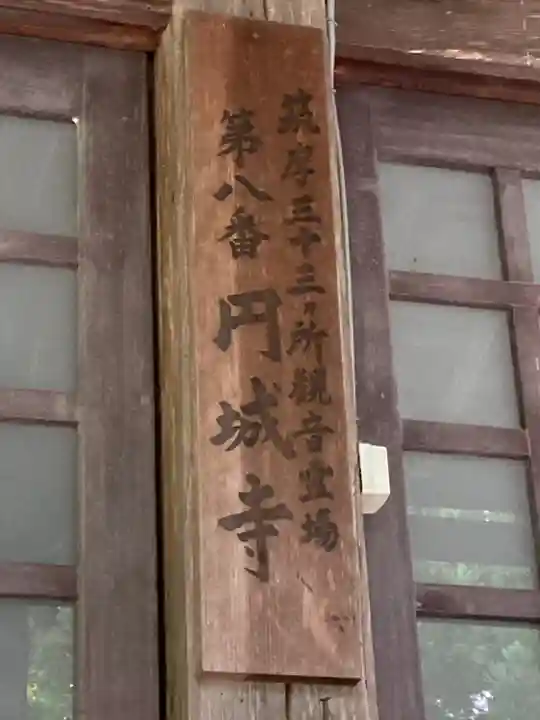 筑摩三十三ヶ所観音霊場
第八番 円城寺